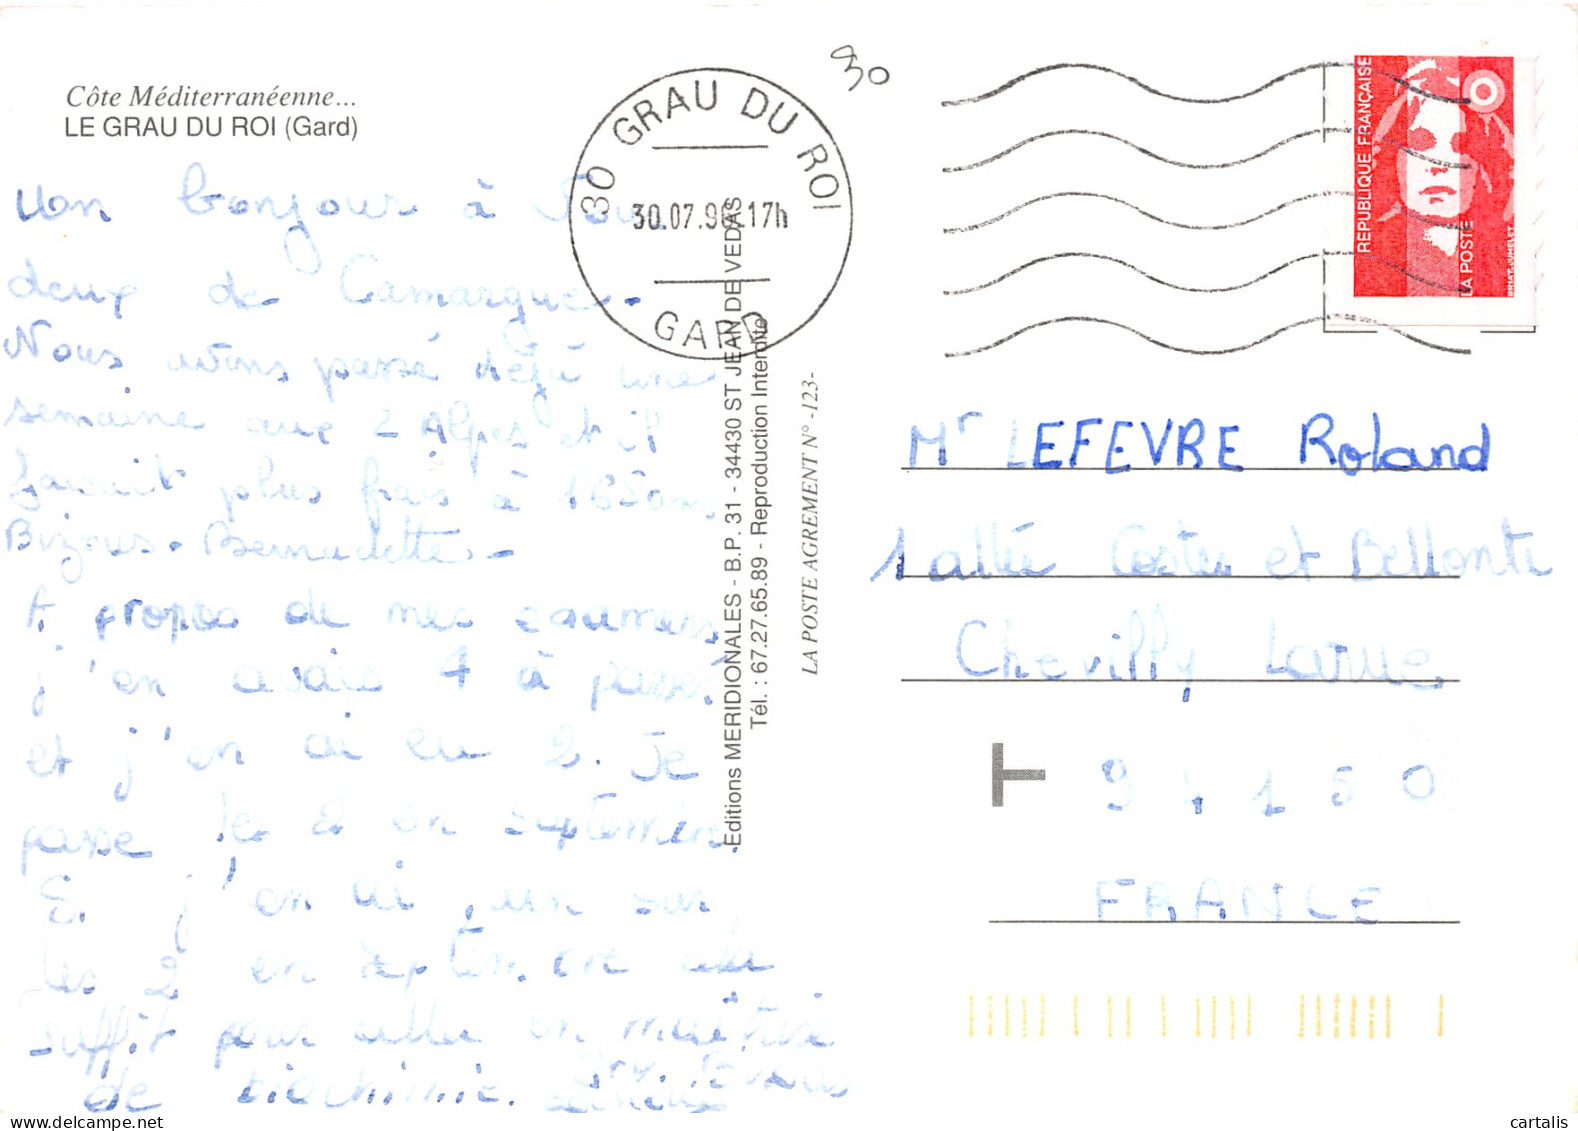 Côte Méditerranéenne...
LE GRAU DU ROI (Gard)
un bonjour à
deux de Camargue.
Nous avons passé déjà une
semaine aux 2 Alpes et il
faisait plus frais à 1650m,
Bizous. Bernadette -
A propos de mes examens,
j'en avais 4 à passer
et j'en ai eu 2. Je
passe les 2 en septembre.
Si j'en ai un sur
les 2 en septembre cela
suffit pour aller en maîtrise
de biochimie.
30 GRAU DU ROI
30.07.96 17h
GARD
30
Editions MERIDIONALES - B.P. 31 - 34430 ST JEAN DE VEDAS
Tél. : 67.27.65.89 - Reproduction Interdite
LA POSTE AGREMENT N° -123-
REPUBLIQUE FRANÇAISE
LA POSTE
Mr LEFEVRE Roland
1 allée Costes et Bellonte
Chevilly Larue
94150
FRANCE
cartalis